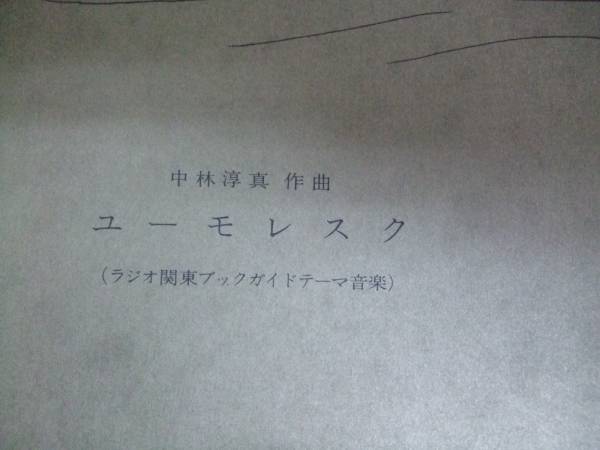 中林淳真 作曲
ユーモレスク
(ラジオ関東ブックガイドテーマ音楽)